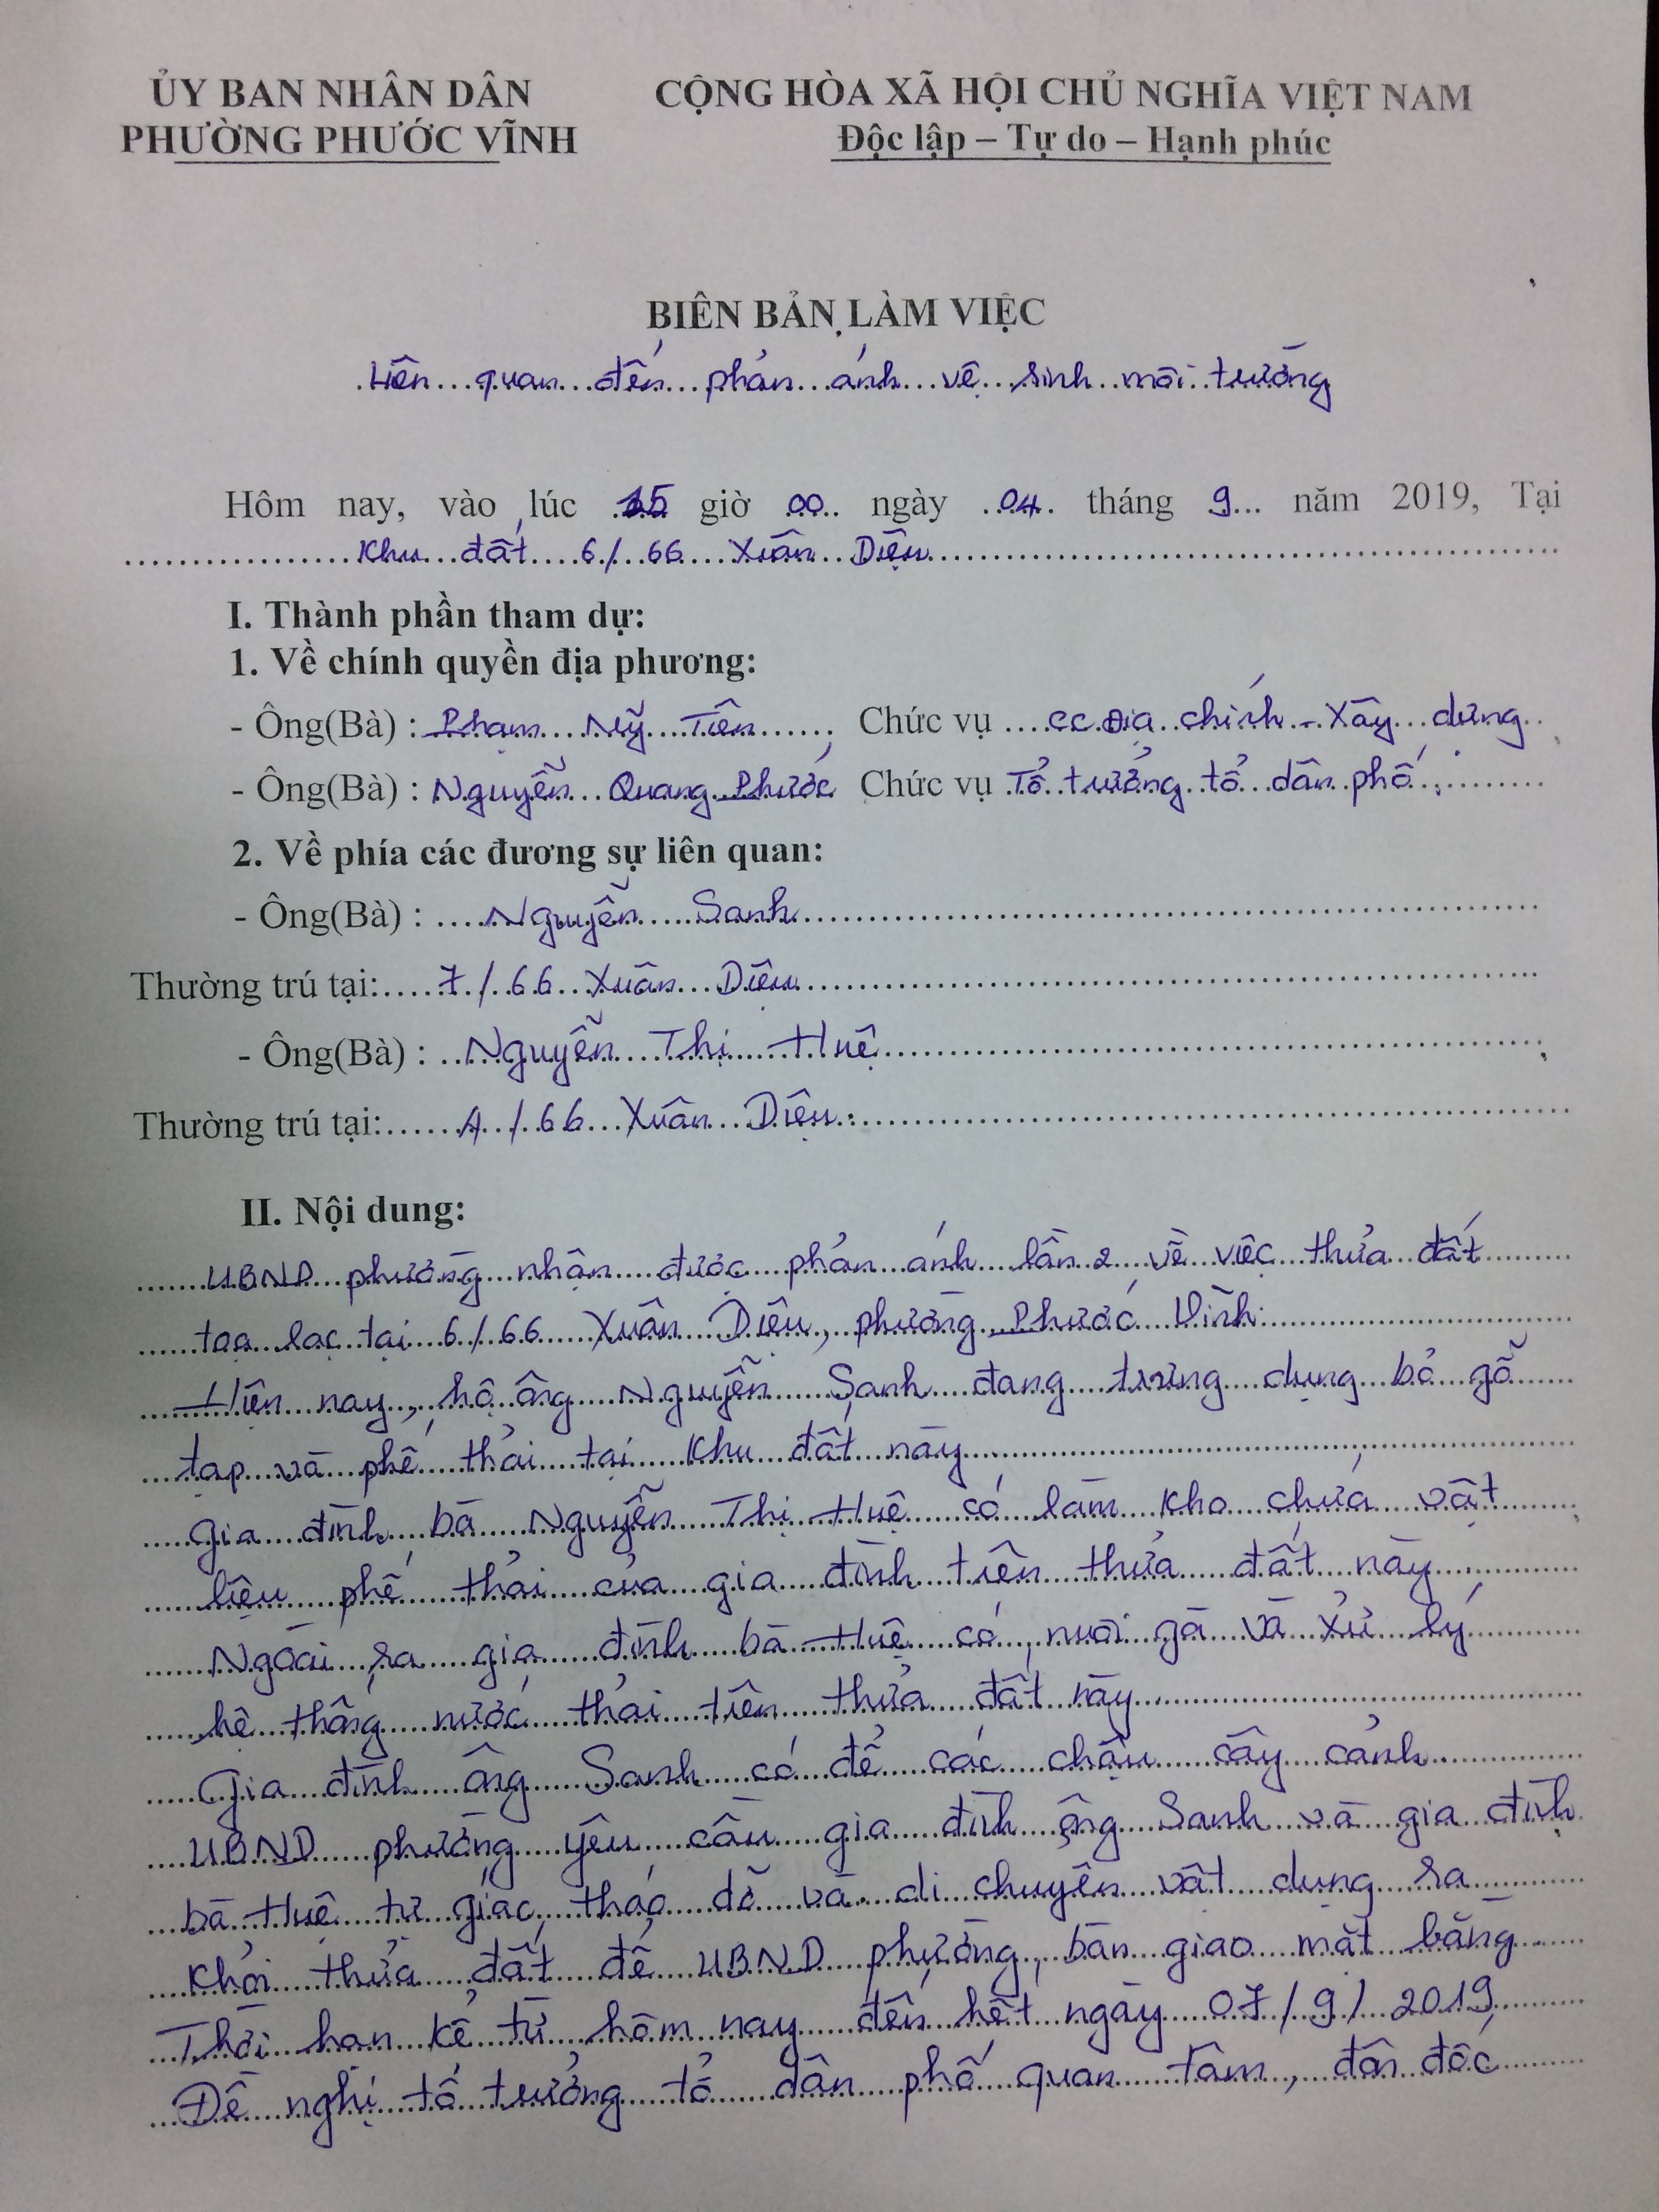 ỦY BAN NHÂN DÂN CỘNG HÒA XÃ HỘI CHỦ NGHĨA VIỆT NAM
PHƯỜNG PHƯỚC VĨNH Độc lập – Tự do – Hạnh phúc
BIÊN BẢN LÀM VIỆC
Liên quan đến phản ánh vệ sinh môi trường
Hôm nay, vào lúc 15 giờ 00 ngày 04 tháng 9 năm 2019, Tại
Khu đất 6/66 Xuân Diệu
I. Thành phần tham dự:
1. Về chính quyền địa phương:
- Ông(Bà) : Phạm Mỹ Tiên Chức vụ CC Địa chính - Xây dựng
- Ông(Bà) : Nguyễn Quang Phước Chức vụ Tổ trưởng tổ dân phố
2. Về phía các đương sự liên quan:
- Ông(Bà) : Nguyễn Sanh
Thường trú tại: 7/66 Xuân Diệu
- Ông(Bà) : Nguyễn Thị Huệ
Thường trú tại: /66 Xuân Diệu
II. Nội dung:
UBND phường nhận được phản ánh lần 2 về việc thửa đất
tọa lạc tại 6/66 Xuân Diệu, phường Phước Vĩnh
Hiện nay, hộ ông Nguyễn Sanh đang trưng dụng bỏ gỗ
tạp và phế thải tại khu đất này
gia đình bà Nguyễn Thị Huệ có làm kho chứa vật
liệu phế thải của gia đình trên thửa đất này
Ngoài ra gia đình bà Huệ có nuôi gà và xử lý
hệ thống nước thải trên thửa đất này
Gia đình ông Sanh có để các chậu cây cảnh
UBND phường yêu cầu gia đình ông Sanh và gia đình
bà Huệ tự giác tháo dỡ và di chuyển vật dụng ra
khỏi thửa đất để UBND phường bàn giao mặt bằng
Thời hạn kể từ hôm nay đến hết ngày 07/9/2019
Đề nghị tổ trưởng tổ dân phố quan tâm, đôn đốc